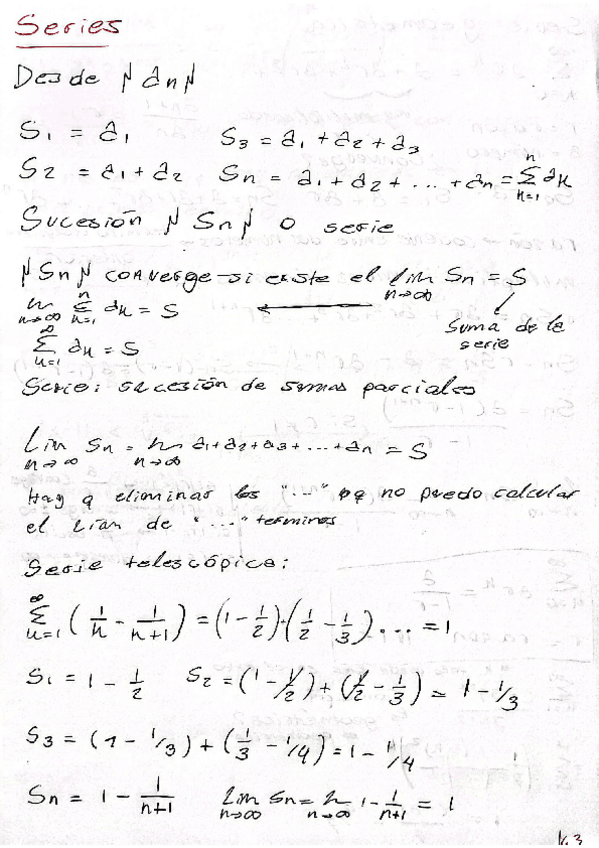 Series
Desde {an}
S1 = a1    S3 = a1 + a2 + a3
S2 = a1 + a2    Sn = a1 + a2 + ... + an = Σ_{k=1}^{n} ak
Sucesión {Sn} o serie
{Sn} converge si existe el lim_{n→∞} Sn = S
lim_{n→∞} Σ_{k=1}^{n} ak = S ←
Suma de la serie
Σ_{k=1}^{∞} ak = S
Serie: sucesión de sumas parciales
Lim_{n→∞} Sn = lim_{n→∞} a1+a2+a3+...+an = S
Hay q eliminar los "..." pq no puedo calcular
el Lim de "..." terminos
Serie telescópica:
Σ_{n=1}^{∞} (1/n - 1/(n+1)) = (1 - 1/2)·(1/2 - 1/3)... = 1
S1 = 1 - 1/2    S2 = (1 - 1/2) + (1/2 - 1/3) = 1 - 1/3
S3 = (1 - 1/3) + (1/3 - 1/4) = 1 - 1/4
Sn = 1 - 1/(n+1)    lim_{n→∞} Sn = lim_{n→∞} 1 - 1/(n+1) = 1